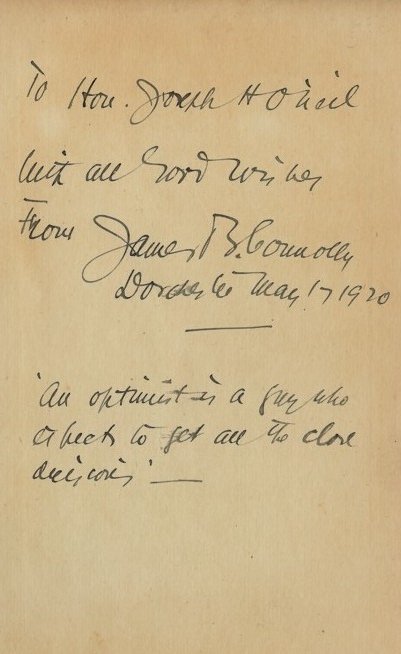 To Hon. Joseph H O'Neil
With all Good Wishes
From James B. Connolly
Dorchester May 17 1920
'An optimist is a guy who
expects to get all the close
decisions'